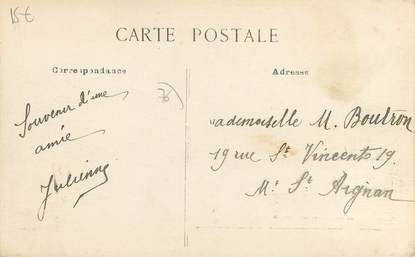 15€
CARTE POSTALE
Correspondance
Adresse
Souvenir d'une
amie
Julienne
Mademoiselle M. Boutron
19 rue St Vincents 19.
Mt St Aignan